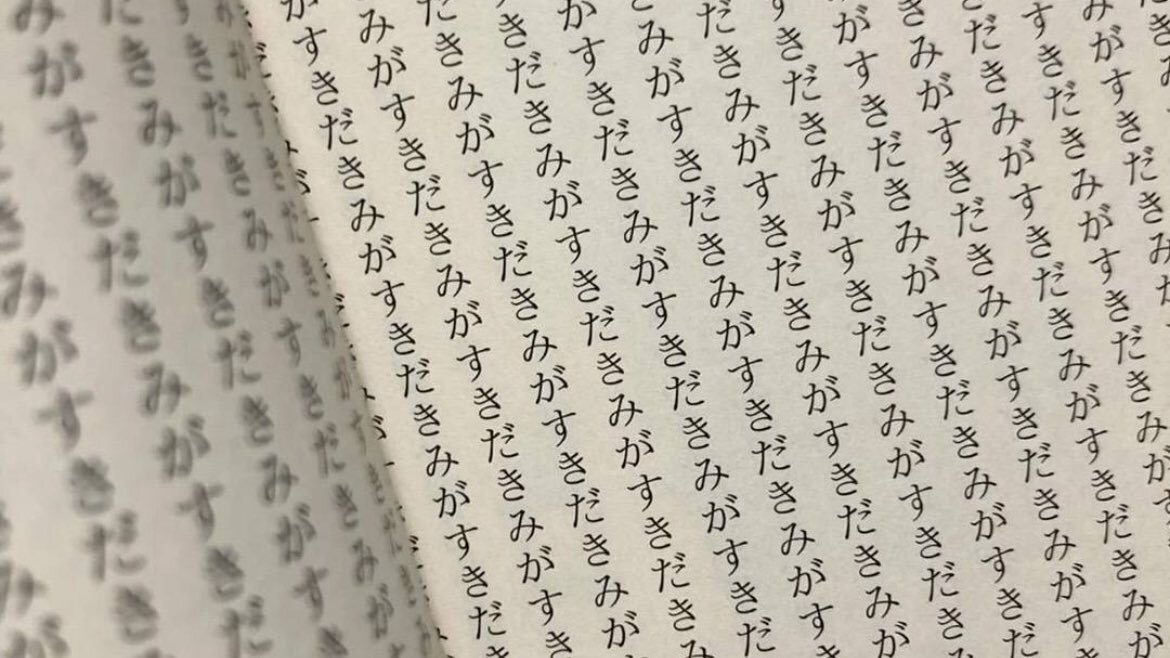 みがすきだきみ
すきだきみがすきだきみがす
だきみがすきだきみがすきだきみが
きみがすきだきみがすきだきみがす
がすきだきみがすきだきみがすきだ
きだきみがすきだきみがすきだき
だきみがすきだきみがすきだきみが
みがすきだきみがすきだきみがす
がすきだきみがすきだきみがすきだ
きだきみがすきだきみがすきだきみ
だきみがすきだきみがすきだきみが
みがすきだきみがすきだきみがすき
がすきだきみがすきだきみがすきだ
きだきみがすきだきみが
きみがすきだきみがすきだ
みがすきだきみがすきだき
みがすきだき